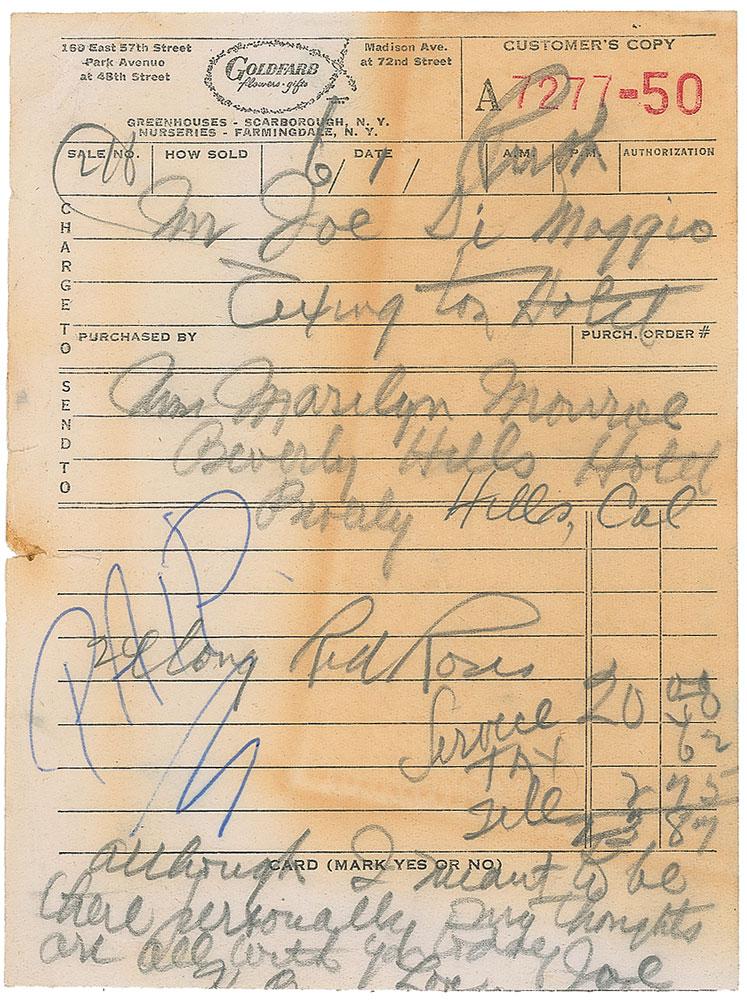 160 East 57th Street
Park Avenue
at 48th Street
GOLDFARB
flowers · gifts
Madison Ave.
at 72nd Street
GREENHOUSES - SCARBOROUGH, N. Y.
NURSERIES - FARMINGDALE, N. Y.
CUSTOMER'S COPY
A 7277-50
SALE NO. HOW SOLD DATE A.M. P.M. AUTHORIZATION
218 6/1/ Rush
CHARGE TO
Mr Joe Di Maggio
Lexington Hotel
PURCHASED BY PURCH. ORDER #
SEND TO
Miss Marilyn Monroe
Beverly Hills Hotel
Beverly Hills, Cal
PAID
long Red Roses
20 00
Service
TAX 62
2 75
23 87
CARD (MARK YES OR NO)
although I meant to be
there personally my thoughts
are all with you today
Love Joe